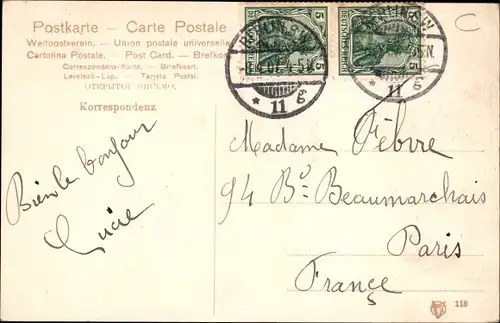 Postkarte - Carte Postale
Weltpostverein. - Union postale universelle
Cartolina Postale. - Post Card. - Brefkort
Correspondenz-Karte. - Briefkaart.
Levelező-Lap. - Tarjeta Postal.
ОТКРЫТОЕ ПИСЬМО.
Korrespondenz
C
5 5
BERLIN
* 11 g * 11 g
Bien le bonjour
Lucie
Madame Fèbvre
94 Bd Beaumarchais
Paris
France
118